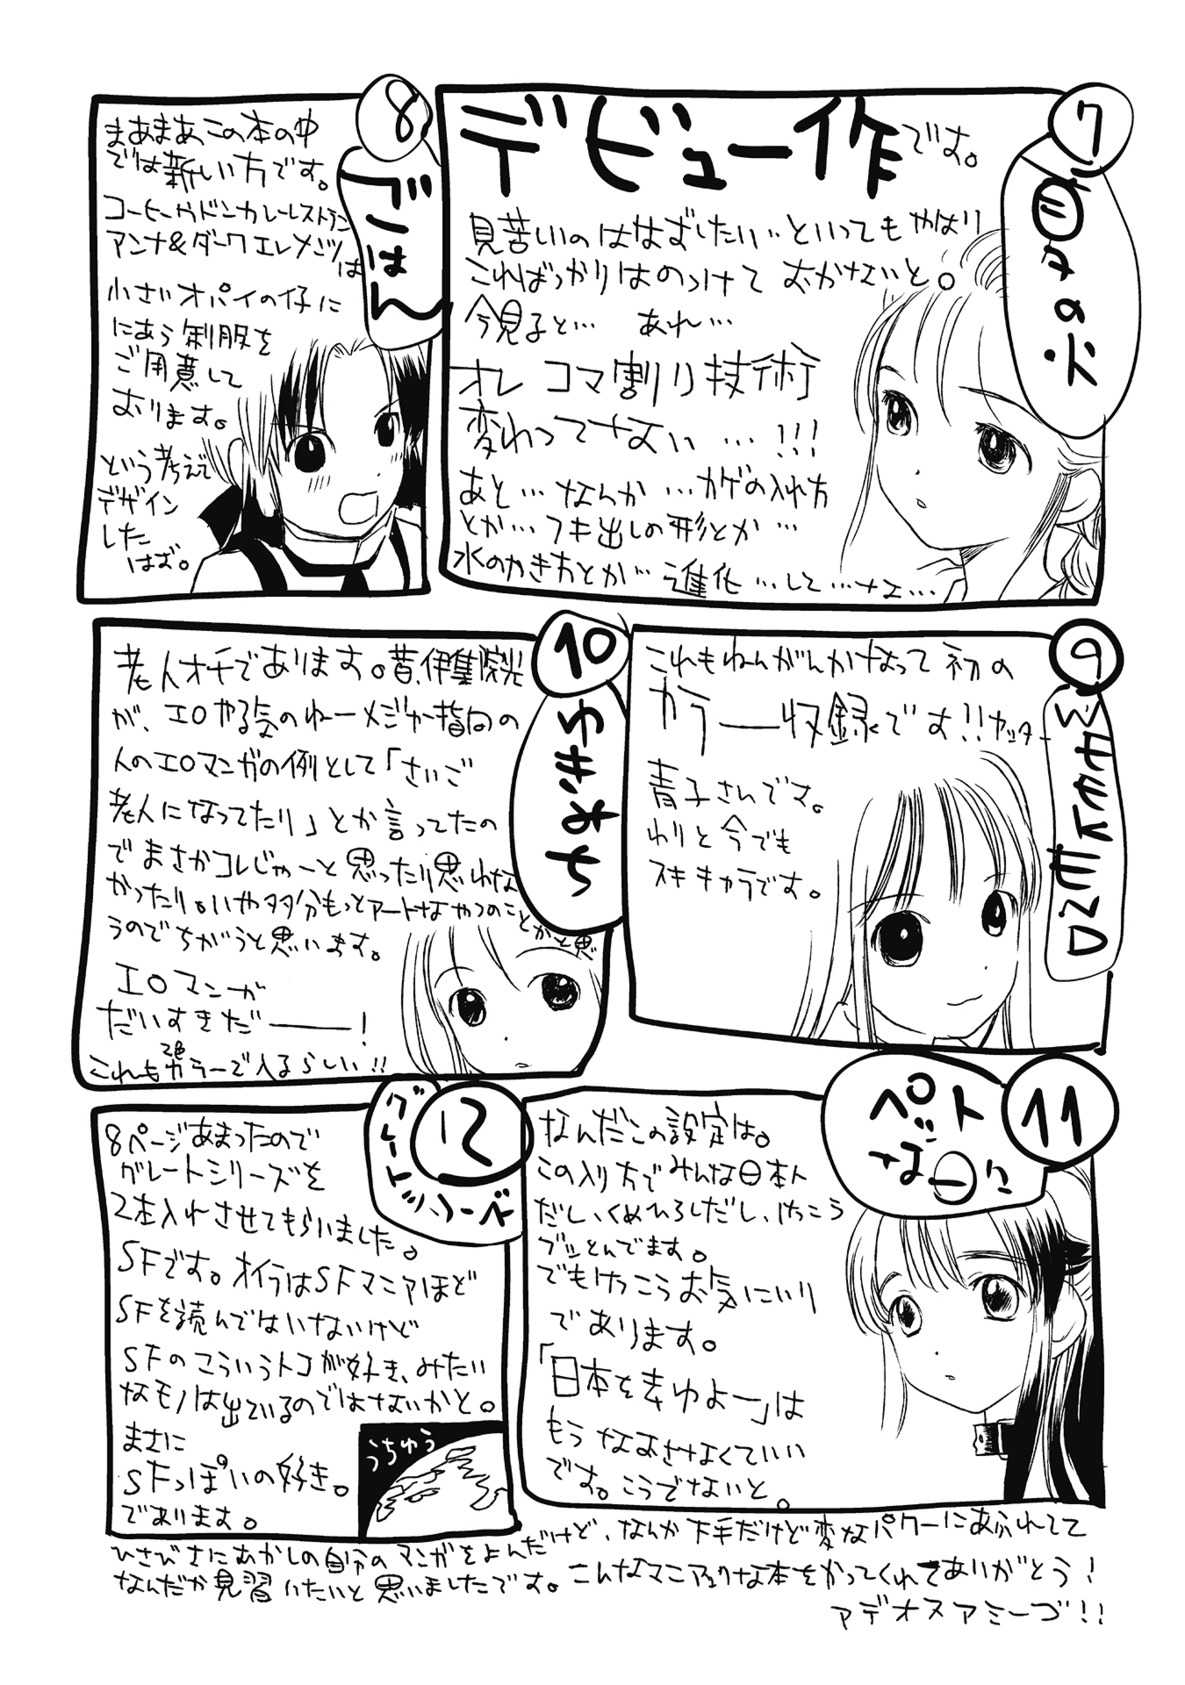 7
の火
デビュー作です。
見苦しいのははずしたい…といってもやはり
こればっかりはのっけておかないと。
今見ると… あれ…
オレ コマ割り技術
変わってない…!!!
あと…なんか…カゲの入れ方
とか…フキ出しの形とか…
水のかき方とか…進化…して…なェ…
8
ごはん
まあまあこの本の中
では新しい方です。
コーヒーやドンカレーレストラン
アンナ&ダークエレメンツは
小さいオパイの仔に
にあう制服を
ご用意して
おります。
という考えで
デザイン
した
はず。
9
WEEKEND
これもねんがんかなって初の
カラー収録です!!ヤッター
青子さんです。
わりと今でも
スキキャラです。
10
ゆきみち
老人オチであります。昔、伊集院光
が、エロやる気のねーメジャー指向の
人のエロマンガの例として「さいご
老人になってたり」とか言ってたの
でまさかコレじゃーと思ったり思わな
かったり。いや多分もっとアートなやつのこととかと思
うのでちがうと思います。
エロマンガ
だいすきだ――!
これも2色カラーで入るらしい!!
11
ペット
な
なんだこの設定は。
この入り方でみんな日本人
だし、くめひろしだし、けっこう
ブッとんでます。
でもけっこうお気にいり
であります。
「日本を去ゆよー」は
もうなおさなくていい
です。こうでないと。
12
グレート
8ページあまったので
グレートシリーズを
2本入れさせてもらいました。
SFです。オイラはSFマニアほど
SFを読んではいないけど
SFのこういうトコが好き、みたい
なモノは出ているのではないかと。
まさに
SFっぽいの好き。
であります。
うちゅう
ひさびさにむかしの自分のマンガをよんだけど、なんか下手だけど変なパワーにあふれてて
なんだか見習いたいと思いましたです。こんなマニアックな本をかってくれてありがとう!
アデオスアミーゴ!!